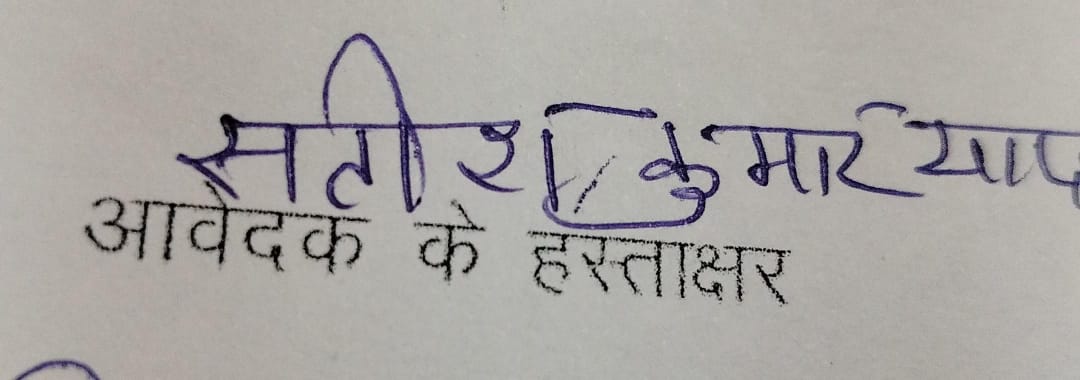 सतीश कुमार
आवेदक के हस्ताक्षर